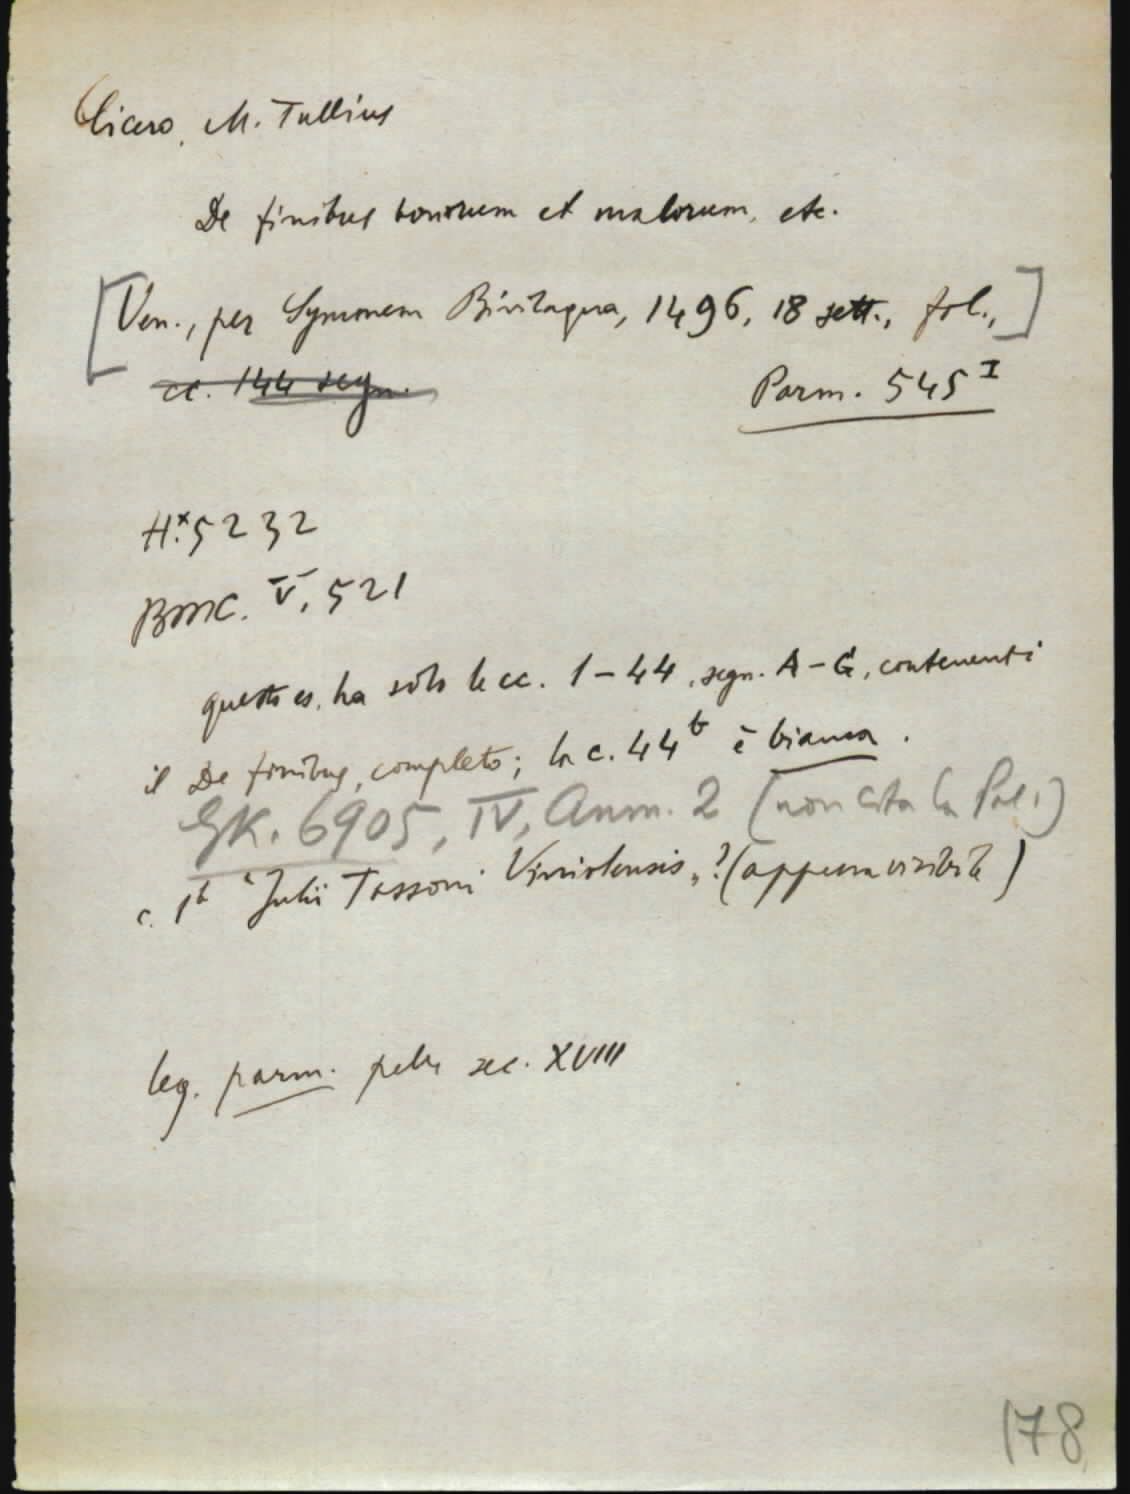 Cicero, M. Tullius
De finibus bonorum et malorum, etc.
[Ven., per Symonem Bivilaqua, 1496, 18 sett., fol.,]
cc. 144 segn.
Parm. 545 I
H.x 5232
BMC. V, 521
questo es. ha solo le cc. 1-44, segn. A-G, contenenti
il De finibus, completo; la c. 44b è bianca.
GK. 6905, IV, Anm. 2 (non cita la Pal.)
c. 1a "Julii Tassoni" ? (appena visibile)
leg. parm. pelle sec. XVIII
178